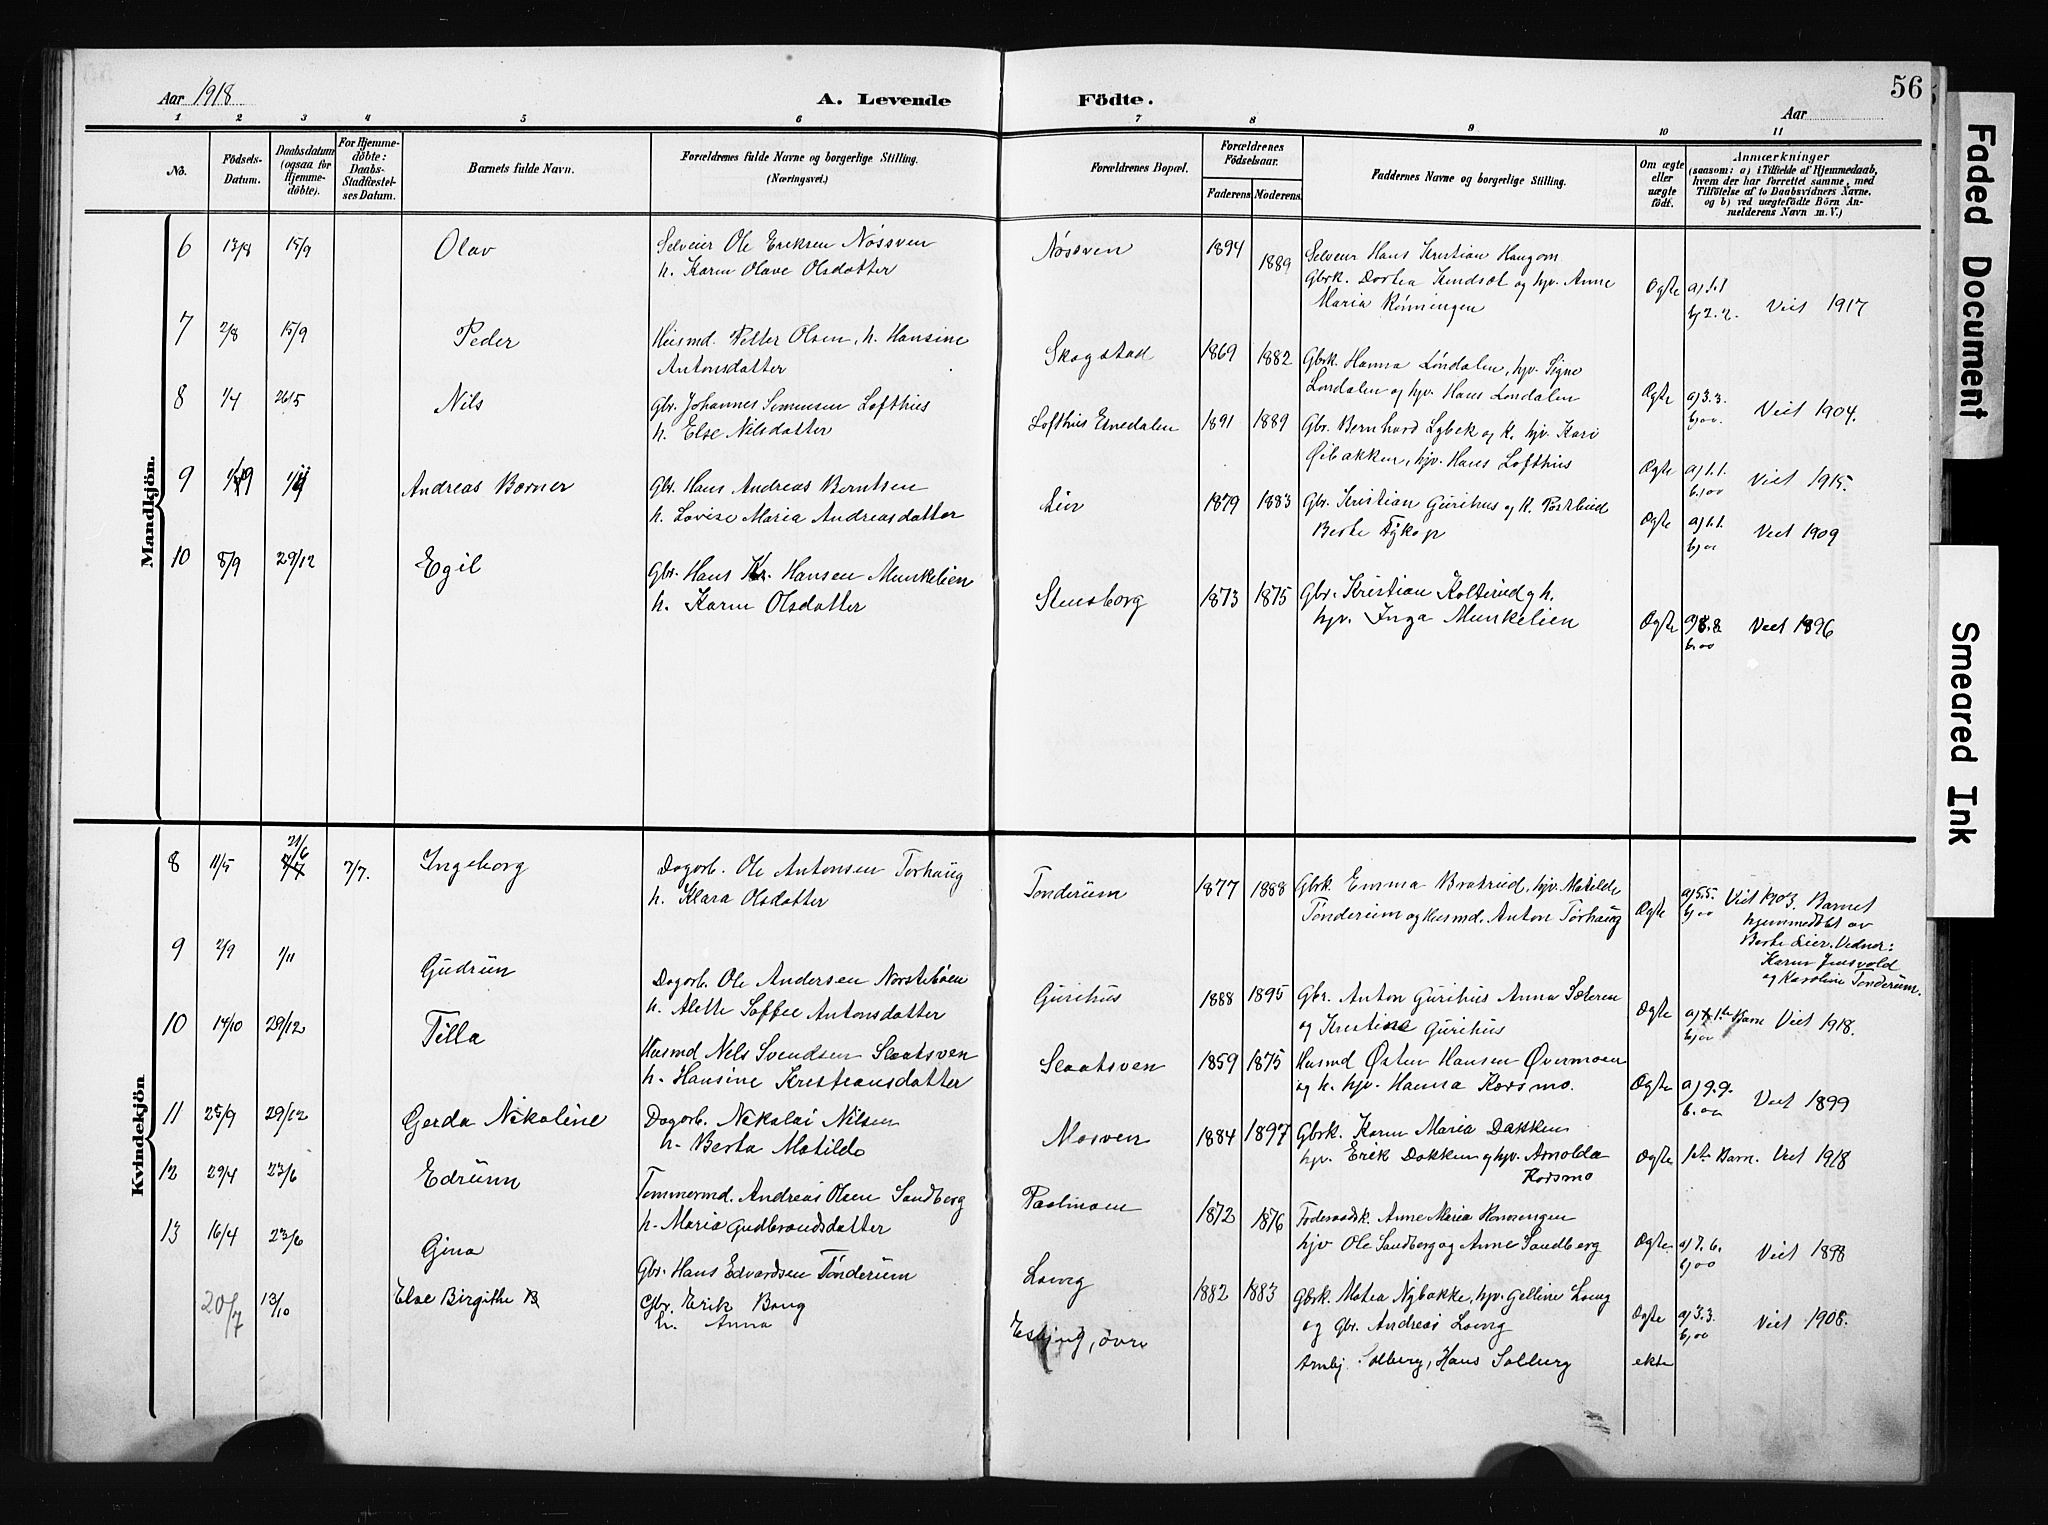 56
Aar 1918
A. Levende Födte.
Aar
1 2 3 4 5 6 7 8 9 10 11
No.
Födsels-Datum.
Daabsdatum (ogsaa for Hjemmedöbte).
For Hjemmedöbte: Daabs-Stadfæstelses Datum.
Barnets fulde Navn.
Forældrenes fulde Navne og borgerlige Stilling. (Næringsvei.)
Forældrenes Bopæl.
Forældrenes Födselsaar.
Faderens
Moderens
Faddernes Navne og borgerlige Stilling.
Om ægte eller uægte födt.
Anmærkninger
(saasom: a) i Tilfælde af Hjemmedaab, hvem der har forrettet samme, med Tilföielse af to Daabsvidners Navne. og b) ved uægtefödte Börn Anmelderens Navn m. V.)
Mandkjön.
6 15/9 Olav Selveier Ole Eriksen Nøssven Nøssven 1894 1889 Selveier Hans Kristian Haugom
h. Karen Olave Olsdatter Gbrk. Dortea og hjv. Anne
Maria Rønningen Ægte a) 1.1 b) 2.2. Viet 1917
7 2/8 15/9 Peder Husmd. Petter Olsen, h. Hansine Skogstad 1869 1882 Gbrk. Hanna Løndalen, hjv. Signe
Antonsdatter Løndalen og hjv. Hans Løndalen Ægte a) 3.3. b) oo. Viet 1904.
8 1/4 26/5 Nils Gbr. Johannes Simensen Lofthus Lofthus Esnedalen 1891 1889 Gbr. Bernhard Lybek og h. hjv. Kari
h. Else Nilsdatter Øibakken, hjv. Hans Lofthus Ægte a) 1.1. b) oo Viet 1915.
9 Andreas Berner Gbr. Hans Andreas Berntsen Lier 1879 1883 Gbr. Kristian Gurihus og h.
h. Lovise Maria Andreasdatter Berte Ægte a) 1.1. b) oo Viet 1909
10 8/9 29/12 Egil Gbr. Hans Kr. Hansen Munkelien Stensborg 1873 1875 Gbr. Kristian Kolterud og h.
h. Karen Olsdatter hjv. Inga Munkelien Ægte a) 8.8 b) oo Viet 1896
Kvindekjön
8 11/5 21/6 7/7 7/7. Ingeborg Dagarb. Ole Antonsen Torhaug Tonderum 1877 1888 Gbrk. Emma Bratrud, hjv. Matilde
h. Klara Olsdatter Tonderum og Husmd. Anton Torhaug Ægte a) 5.5. b) oo Viet 1903. Barnet
hjemmedøbt av
Berte Lier. Vidner:
Karen Jensvold
og Karoline Tonderum.
9 2/9 1/11 Gudrun Dagarb. Ole Andersen Norstebøen Gurihus 1888 1895 Gbr. Anton Gurihus Anna Sæteren
h. Alette Soffie Antonsdatter og Kristine Gurihus Ægte a) 1ste Barn b) oo Viet 1918.
10 14/10 29/12 Tilla Husmd Nils Svendsen Slaatsven Slaatsven 1859 1875 Husmd Østen Hansen Øvermoen
h. Hansine Kristiansdatter og h. hjv. Hanna Korsmo. Ægte a) 9.9. b. oo Viet 1899
11 25/9 29/12 Gerda Nikoline Dagarb. Nikolai Nilsen Mosven 1884 1897 Gbrk. Karen Maria Dakken
h. Berta Matilde hjv. Erik Dokken og hjv. Arnolda
Korsmo Ægte 1ste Barn. Viet 1918
12 29/4 23/6 Edrunn Tømmermd. Andreas Olsen Sandberg Paalmoen 1872 1876 Anne Maria
h. Maria Gudbrandsdatter hjv Ole Sandberg og Anne Sandberg Ægte a) 7.6. b) oo Viet 1898
13 16/4 23/6 Gina Gbr. Hans Edvardsen Tonderum Loeng 1882 1883 Gbrk. Matea Nybakke, hjv. Geline Loeng
og Gbr. Andreas Loeng Ægte a) 3.3. b) oo Viet 1908.
20/7 13/10 Else Birgithe Gbr. Erik Bang øvre
h. Anna Arnbj. Solberg, Hans Solberg ekte
Faded Document
Smeared Ink